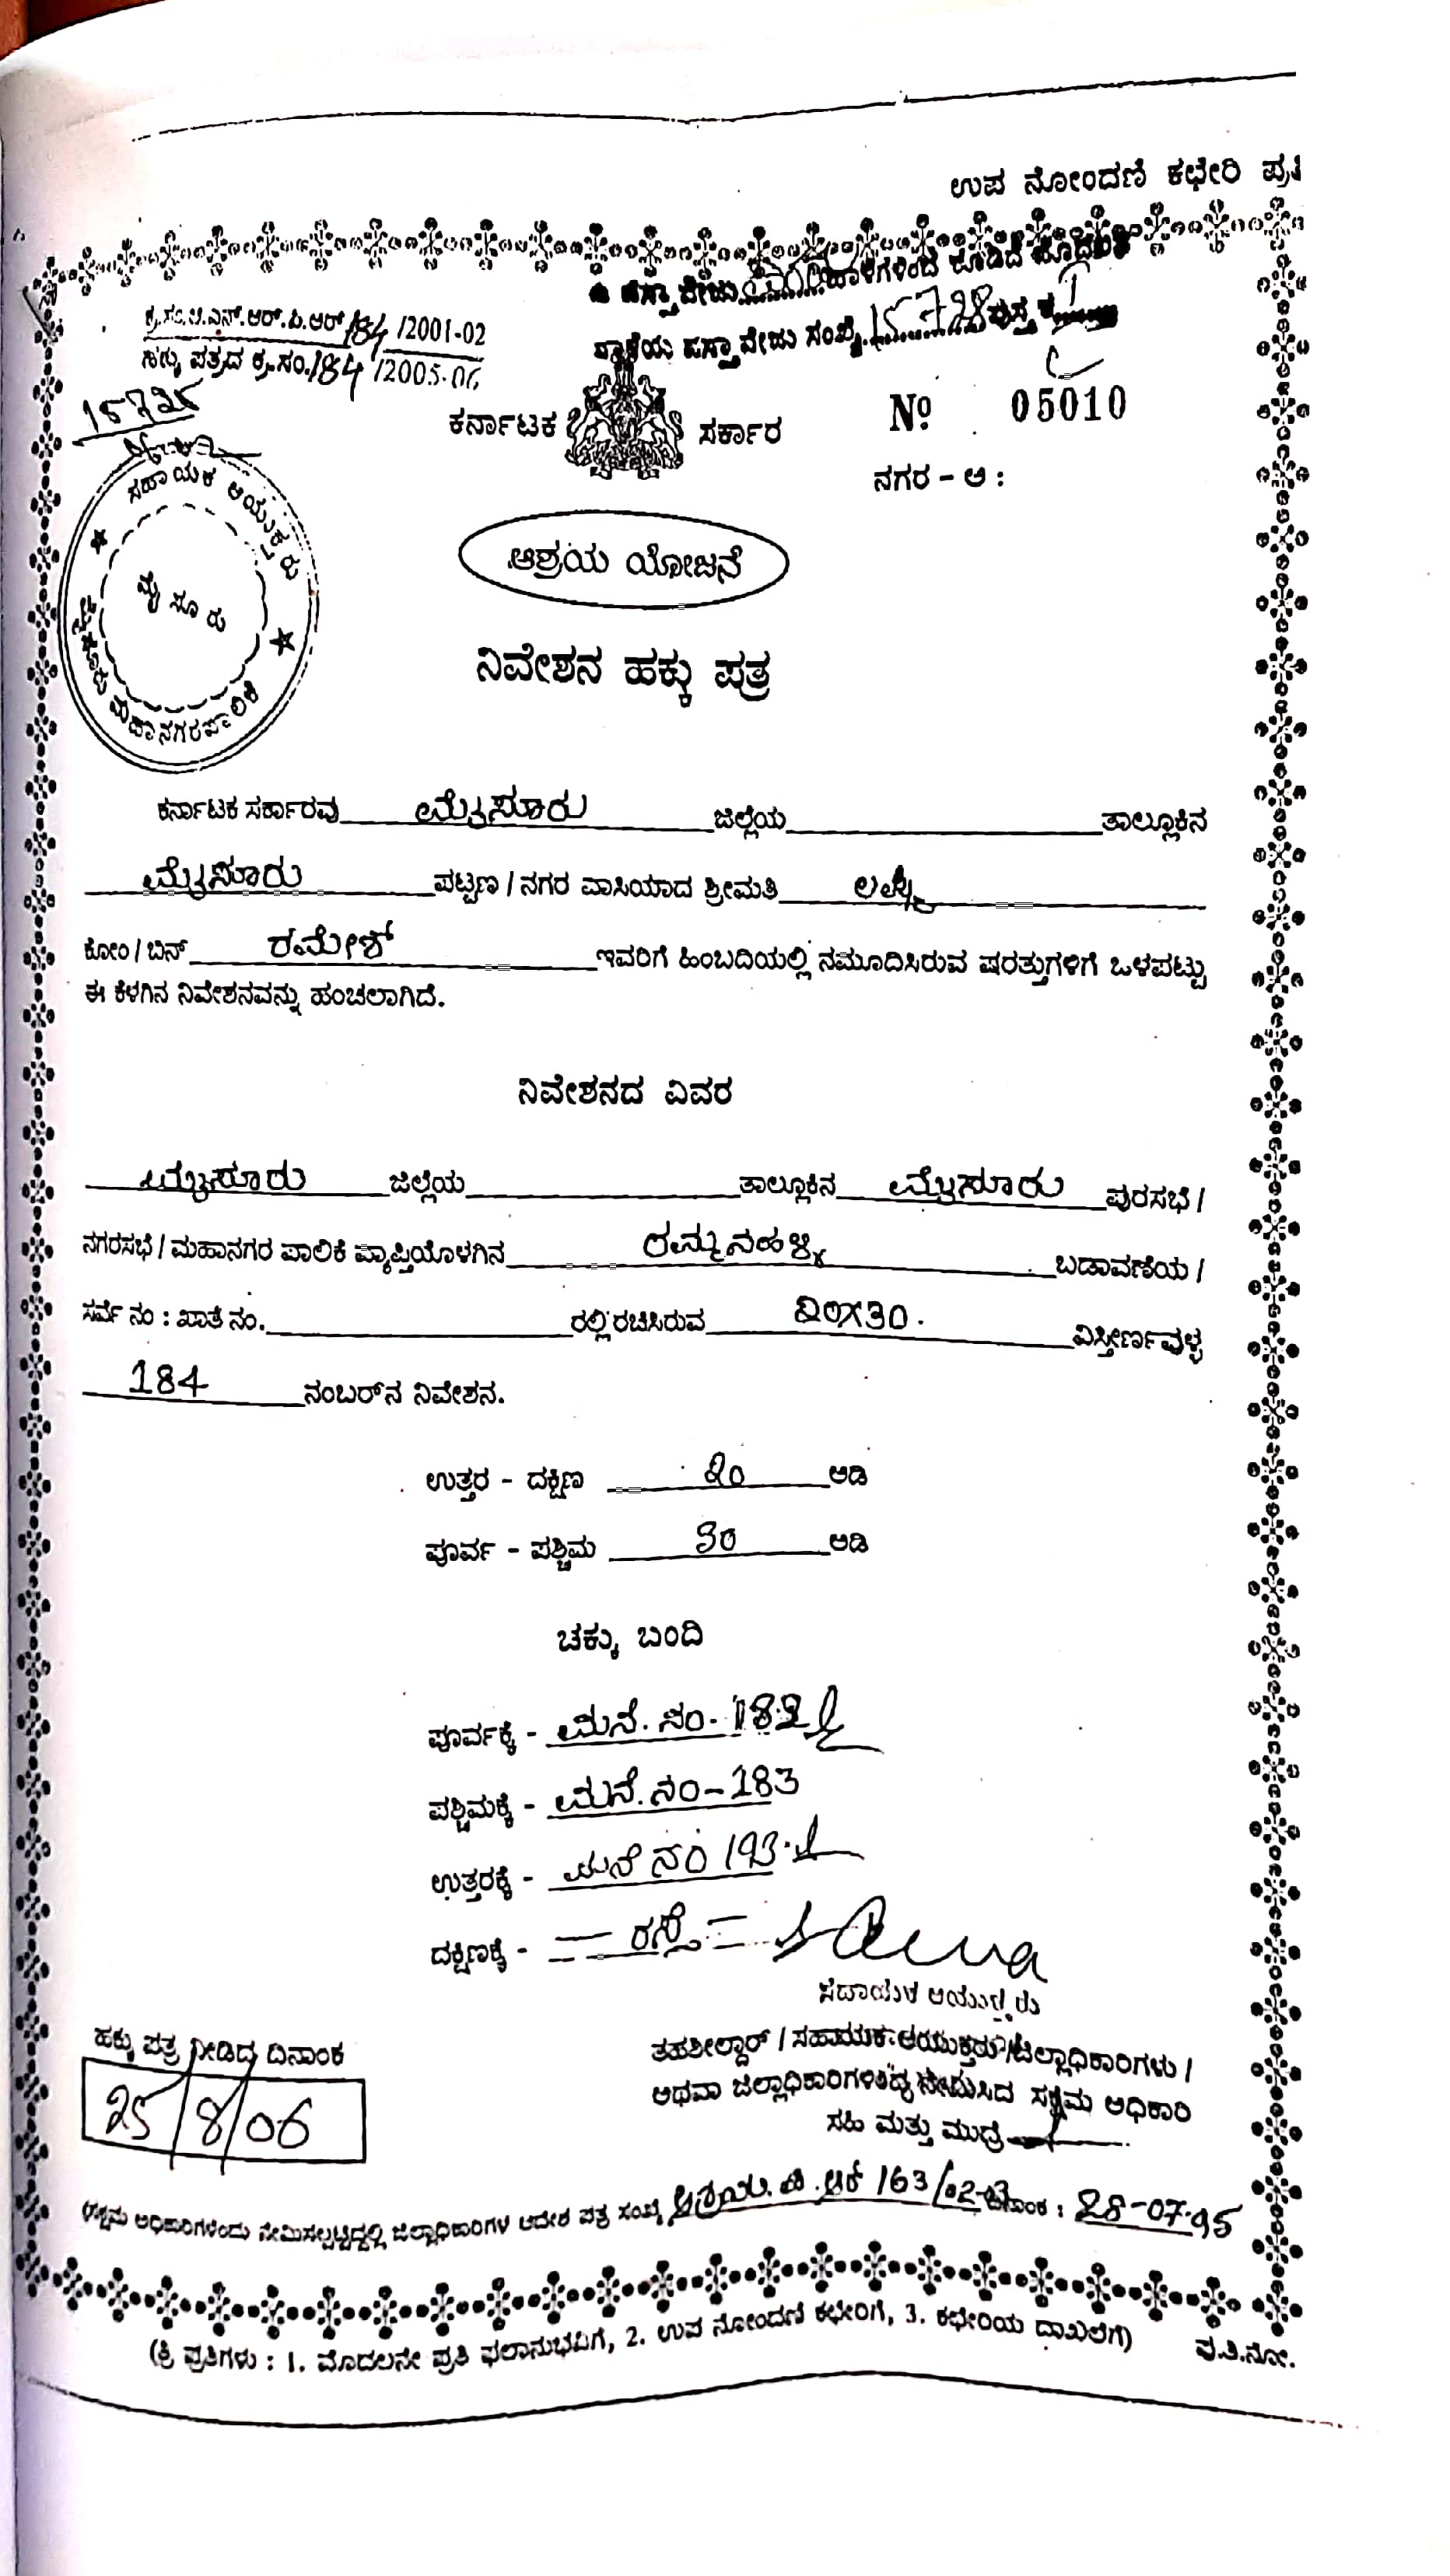 ಉಪ ನೋಂದಣಿ ಕಛೇರಿ ಪ್ರತಿ
ದಸ್ತಾವೇಜು ಹಾಳೆಗಳಿಂದ ಕೂಡಿದೆ
ದಸ್ತಾವೇಜು ಸಂಖ್ಯೆ 15728 ಪುಸ್ತಕ 1
ಕ್ರ.ಸಂ.ಟಿ.ಎನ್.ಆರ್.ಪಿ.ಆರ್ 184 /2001-02
ಹಕ್ಕು ಪತ್ರದ ಕ್ರ.ಸಂ. 184 /2005-06
15725
ಕರ್ನಾಟಕ ಸರ್ಕಾರ
Nº 05010
ನಗರ - ಅ :
ಸಹಾಯಕ ಆಯುಕ್ತರು
ಮೈಸೂರು
ಮಹಾನಗರಪಾಲಿಕೆ
ಆಶ್ರಯ ಯೋಜನೆ
ನಿವೇಶನ ಹಕ್ಕು ಪತ್ರ
ಕರ್ನಾಟಕ ಸರ್ಕಾರವು ಮೈಸೂರು ಜಿಲ್ಲೆಯ ತಾಲ್ಲೂಕಿನ
ಮೈಸೂರು ಪಟ್ಟಣ / ನಗರ ವಾಸಿಯಾದ ಶ್ರೀಮತಿ ಲಕ್ಷ್ಮಿ
ಕೋಂ / ಬಿನ್ ರಮೇಶ್ ಇವರಿಗೆ ಹಿಂಬದಿಯಲ್ಲಿ ನಮೂದಿಸಿರುವ ಷರತ್ತುಗಳಿಗೆ ಒಳಪಟ್ಟು
ಈ ಕೆಳಗಿನ ನಿವೇಶನವನ್ನು ಹಂಚಲಾಗಿದೆ.
ನಿವೇಶನದ ವಿವರ
ಮೈಸೂರು ಜಿಲ್ಲೆಯ ತಾಲ್ಲೂಕಿನ ಮೈಸೂರು ಪುರಸಭೆ /
ನಗರಸಭೆ / ಮಹಾನಗರ ಪಾಲಿಕೆ ವ್ಯಾಪ್ತಿಯೊಳಗಿನ ರಮ್ಮನಹಳ್ಳಿ ಬಡಾವಣೆಯ /
ಸರ್ವೆ ನಂ : ಖಾತೆ ನಂ. ರಲ್ಲಿ ರಚಿಸಿರುವ 20X30. ವಿಸ್ತೀರ್ಣವುಳ್ಳ
184 ನಂಬರ್‌ನ ನಿವೇಶನ.
ಉತ್ತರ - ದಕ್ಷಿಣ 20 ಅಡಿ
ಪೂರ್ವ - ಪಶ್ಚಿಮ 30 ಅಡಿ
ಚಕ್ಕು ಬಂದಿ
ಪೂರ್ವಕ್ಕೆ - ಮನೆ. ನಂ-
ಪಶ್ಚಿಮಕ್ಕೆ - ಮನೆ. ನಂ-183
ಉತ್ತರಕ್ಕೆ - ಮನೆ ನಂ 193
ದಕ್ಷಿಣಕ್ಕೆ - = ರಸ್ತೆ =
ಸಹಾಯಕ ಆಯುಕ್ತರು
ಹಕ್ಕು ಪತ್ರ ನೀಡಿದ ದಿನಾಂಕ
25/8/06
ತಹಶೀಲ್ದಾರ್ / ಸಹಾಯಕ ಆಯುಕ್ತರು / ಜಿಲ್ಲಾಧಿಕಾರಿಗಳು /
ಅಥವಾ ಜಿಲ್ಲಾಧಿಕಾರಿಗಳಿಂದ ನೇಮಿಸಿದ ಸಕ್ಷಮ ಅಧಿಕಾರಿ
ಸಹಿ ಮತ್ತು ಮುದ್ರೆ
(ಸಕ್ಷಮ ಅಧಿಕಾರಿಗಳೆಂದು ನೇಮಿಸಲ್ಪಟ್ಟಿದ್ದಲ್ಲಿ ಜಿಲ್ಲಾಧಿಕಾರಿಗಳ ಆದೇಶ ಪತ್ರ ಸಂಖ್ಯೆ ಆಶ್ರಯ. ಪಿ.ಆರ್ 163/02-03 ದಿನಾಂಕ : 28-07-95
(ತ್ರಿ ಪ್ರತಿಗಳು : 1. ಮೊದಲನೇ ಪ್ರತಿ ಫಲಾನುಭವಿಗೆ, 2. ಉಪ ನೋಂದಣಿ ಕಛೇರಿಗೆ, 3. ಕಛೇರಿಯ ದಾಖಲೆಗೆ) ಪು.ತಿ.ನೋ.